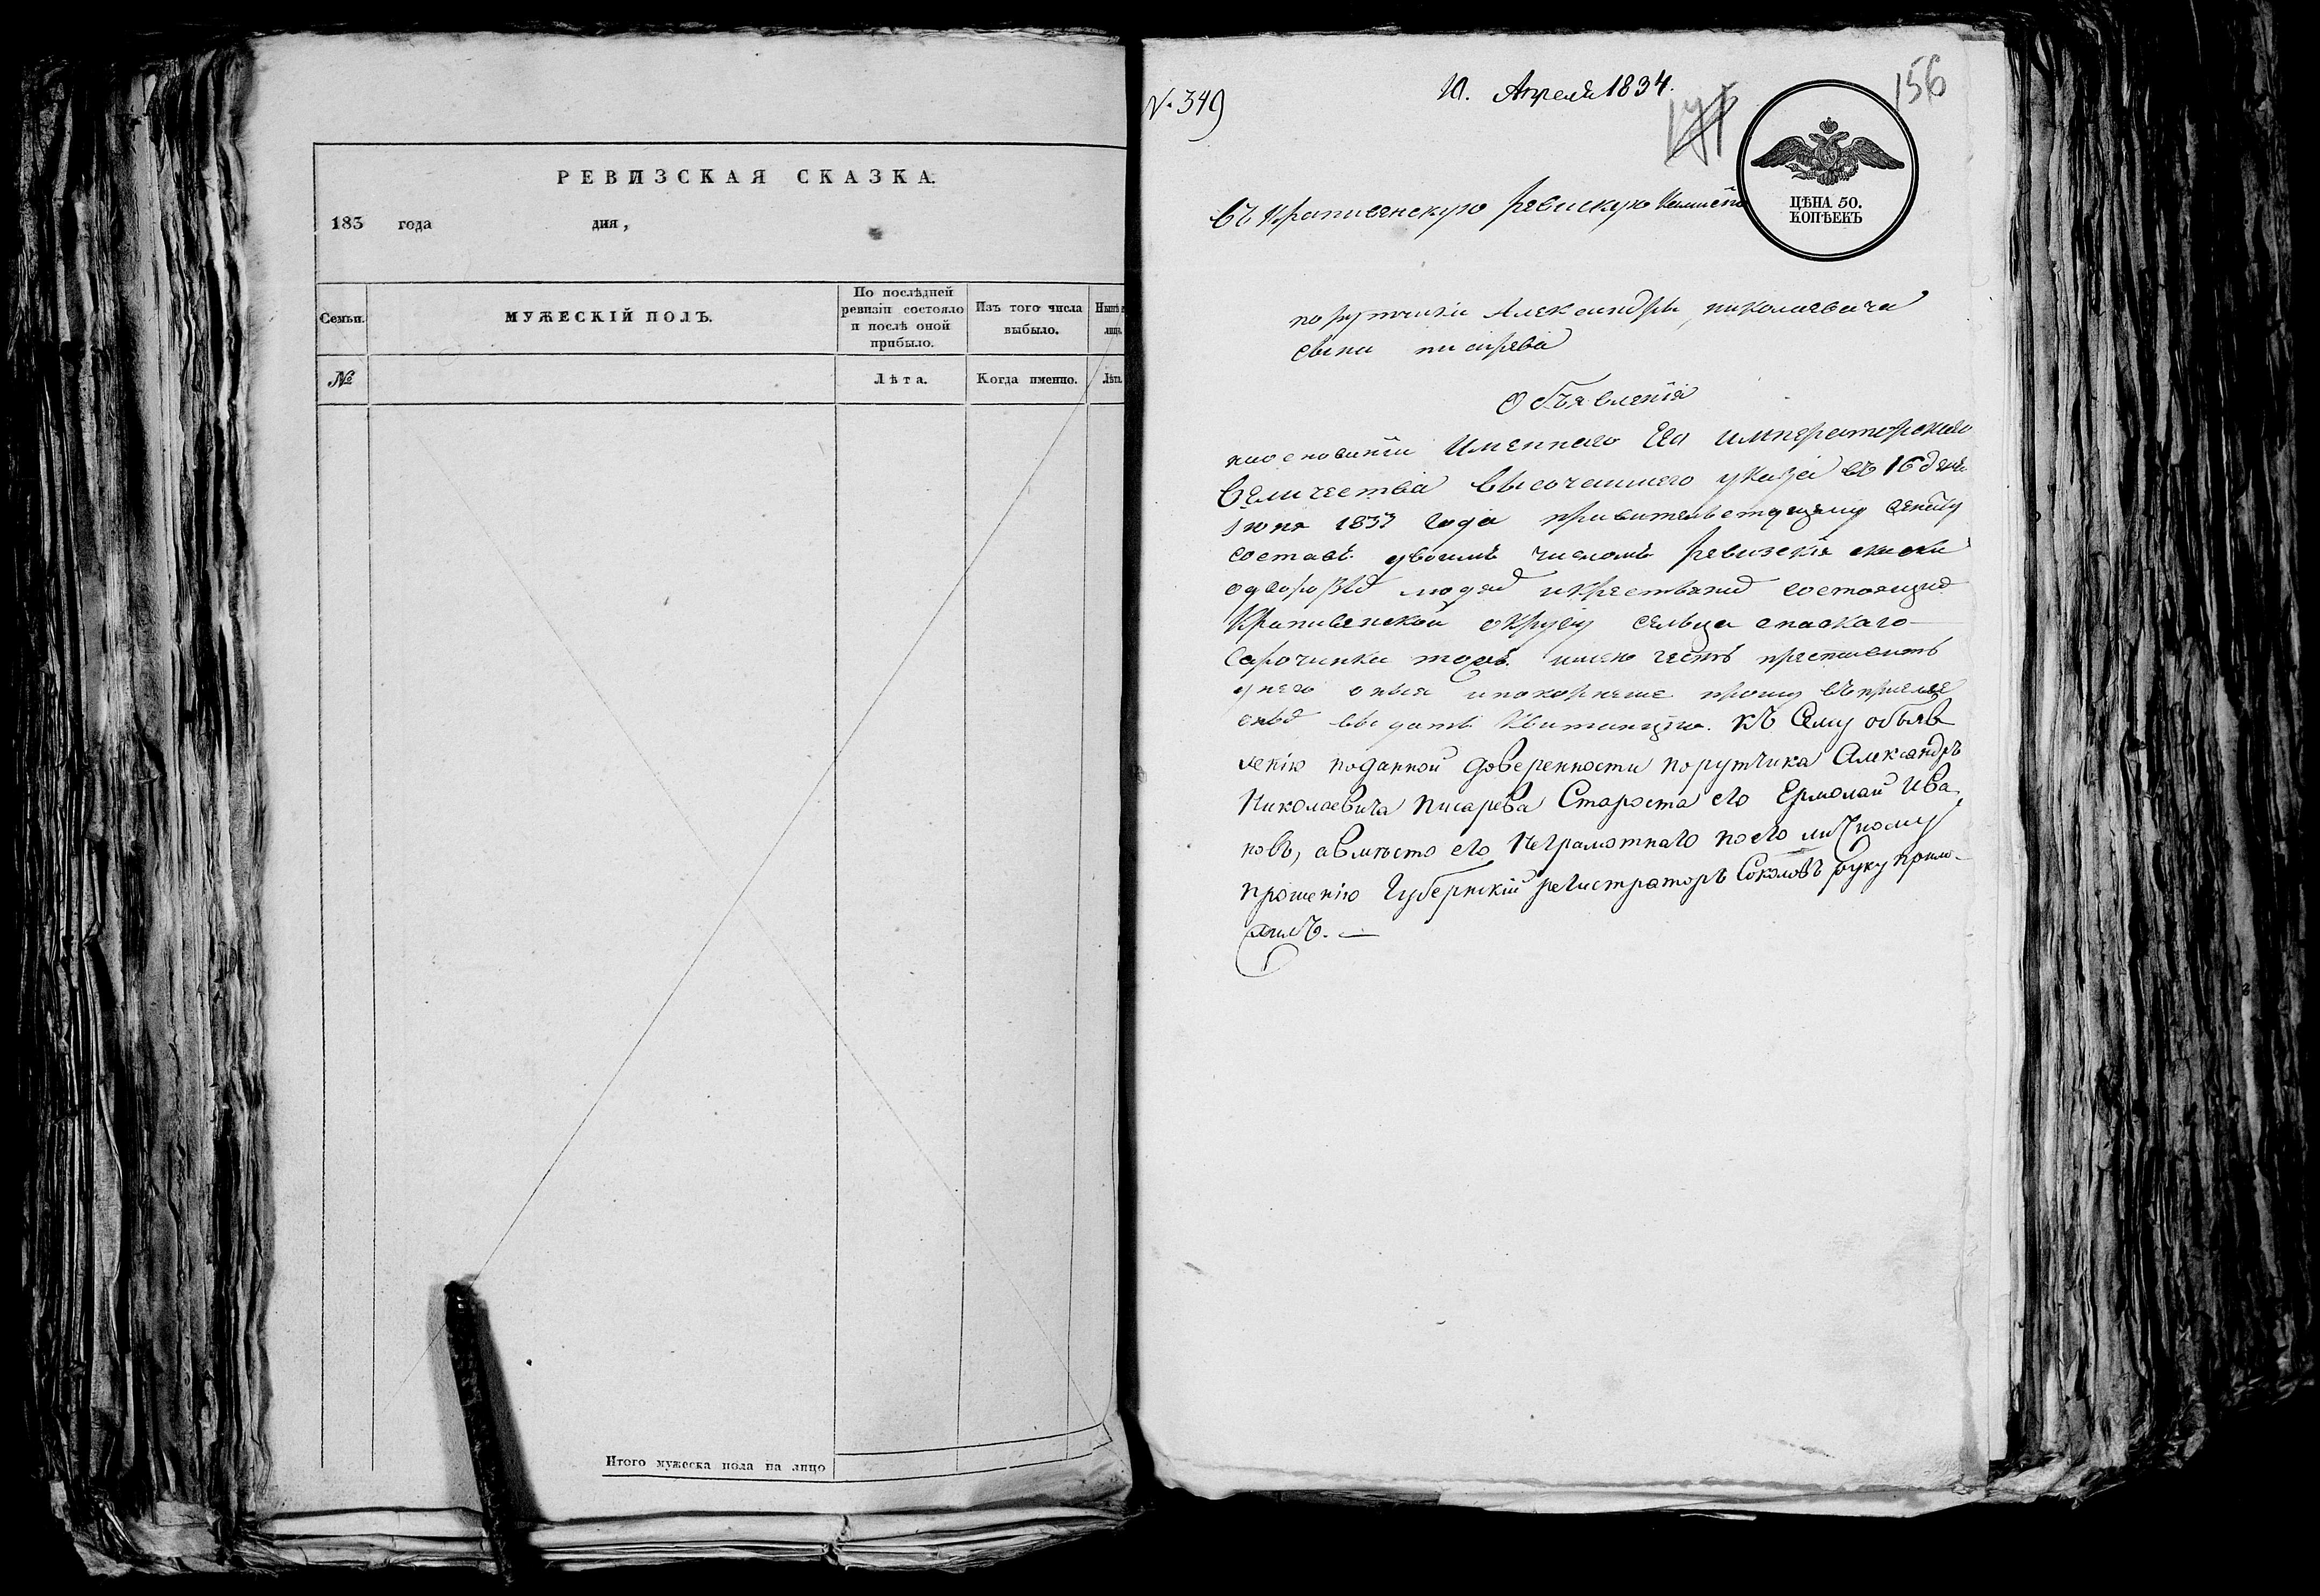 РЕВИЗСКАЯ СКАЗКА.
183 года дня,
Семьи.
МУЖЕСКІЙ ПОЛЪ.
По послѣдней
ревизіи состояло
и послѣ оной
прибыло.
Изъ того числа
выбыло.
Нынѣ
лицо.
№
Лѣта.
Когда именно.
Лѣта
Итого мужеска пола на лицо
№ 349
10. Апреля 1834.
156
ЦѢНА 50.
КОПѢЕКЪ
Въ Крапивенскую ревискую
порутчика Александра николаевича
сына писарева
Объявленія
наосновании Именнаго Его императорскаго
Величества высочаишего указа въ 16 день
июня 1833 года правительствующему сенату
составѣ двоимъ числомъ ревизскія скаски
одворовыхъ людяхъ икрестьянихъ состоящихъ
Крапивенской округи сельца спаскаго
Сарочинки тожъ имею честь преставить
оныя ипокорнеше прошу въприеме
оныхъ выдать Квитанцію. Къ Сему объяв
ленію поданной доверенности порутчика Александръ
Николаевича писарева Староста его Ермолаи Ива
новъ, авместо его Неграмотнаго поего личному
прошенію Губернскій регистраторъ Соколовъ руку прило-
жилъ.